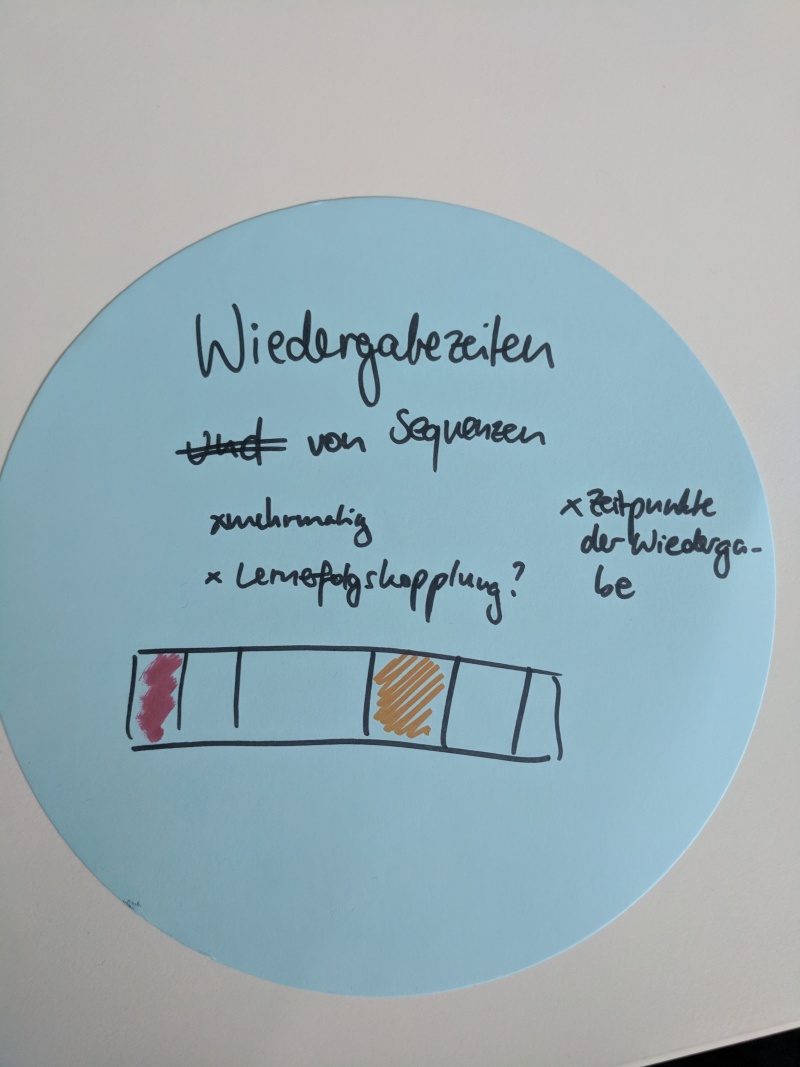 Wiedergabezeiten
und von Sequenzen
x mehrmalig
x Lernerfolgskopplung?
x Zeitpunkte
der Wiederga-
be